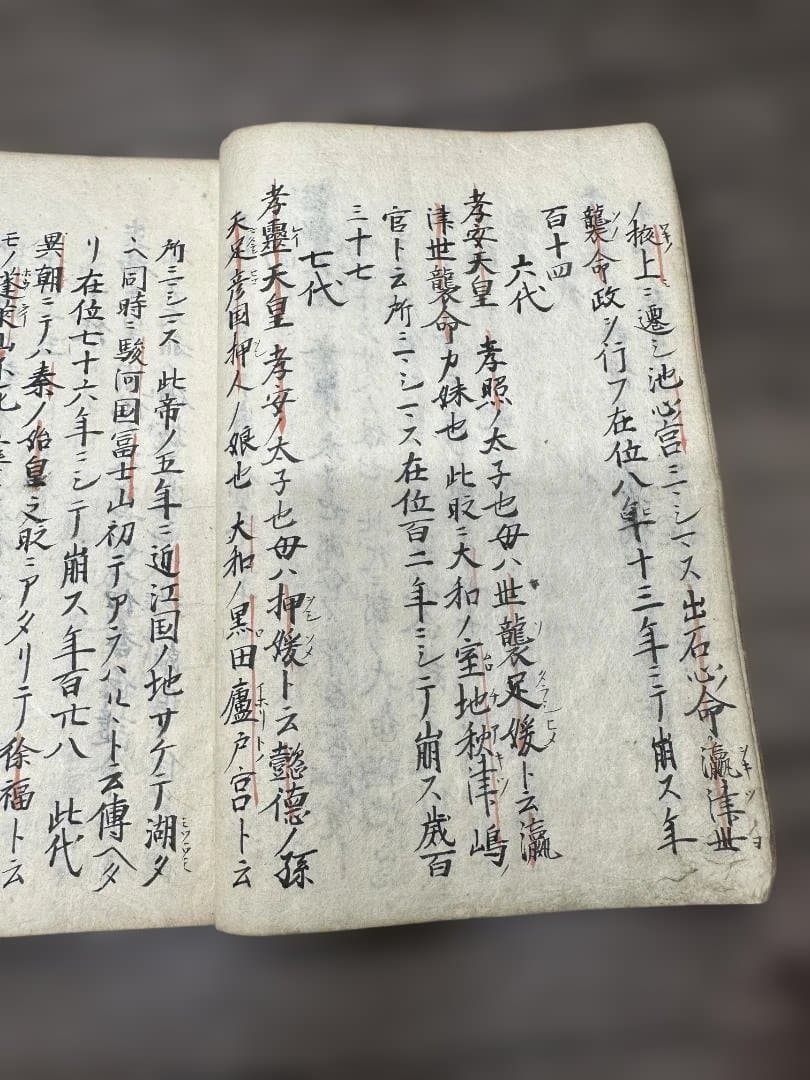 ノ掖上ニ遷シ池心宮ニマシマス出石心命瀛津世
襲命政シ行フ在位八年十三年ニテ崩ス年
百十四
六代
孝安天皇 孝照ノ太子也母ハ世襲足媛ト云瀛
津世襲命カ妹也 此时ニ大和ノ室地秋津嶋ノ
官ト云所ニマシマス在位百二年ニシテ崩ス歳百
三十七
七代
孝靈天皇 孝安ノ太子也母ハ押媛ト云懿德ノ孫
天足彦国押人ノ娘也 大和ノ黒田廬戸宮ト云
所ニマシマス 此帝ノ五年ニ近江国ノ地サケテ湖タ
ヘ同時ニ駿河国富士山初テアラハルヽト云傳ヘタ
リ在位七十六年ニシテ崩ス年百廿八 此代
異朝ニテハ秦ノ始皇之时ニアタリテ徐福ト云
モノ蓬萊山不死